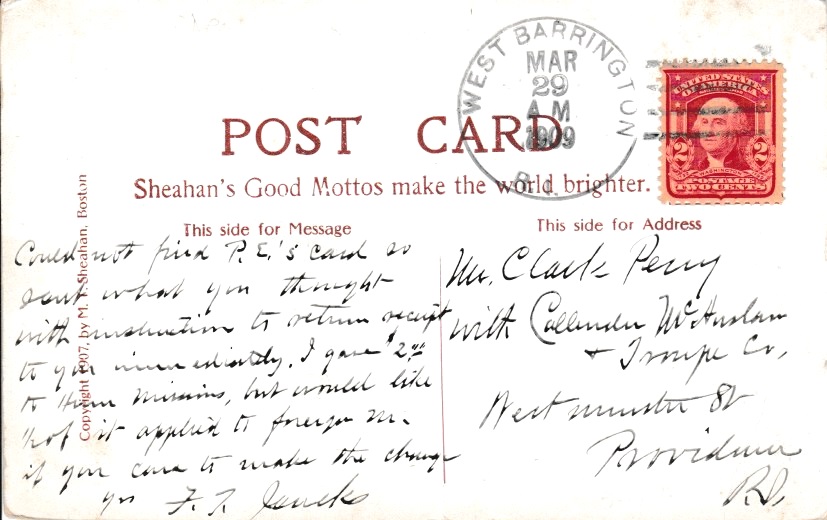 WEST BARRINGTON
MAR
29
A M
1909
R.I.
UNITED STATES
OF AMERICA
2 2
WASHINGTON
POSTAGE
TWO CENTS
POST CARD
Sheahan's Good Mottos make the world brighter.
This side for Message
Could not find P.E.'s card so
sent what you thought
with instruction to return receipt
to you immediately. I gave $2.00
to Home Missions, but would like
it applied to foreign M.
if you care to make the change
yrs F. T. Jencks
This side for Address
Mr. Clark Perry
with Callender McAuslan
+ Troupe Co,
Westminster St
Providence
R.I.
Copyright 1907, by M. T. Sheahan, Boston